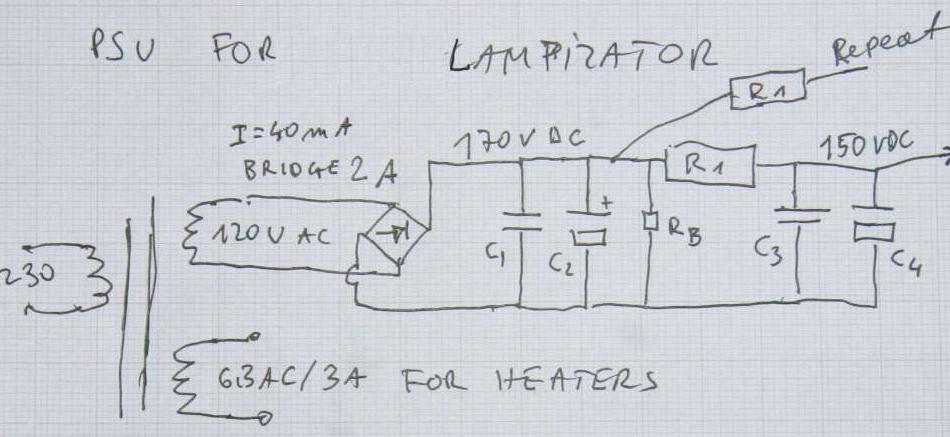 PSU FOR LAMPIZATOR
Repeat
R1
I=40mA
BRIDGE 2A
170V DC
R1
150VDC
120V AC
C1
C2
+
RB
C3
C4
230
6.3AC/3A FOR HEATERS